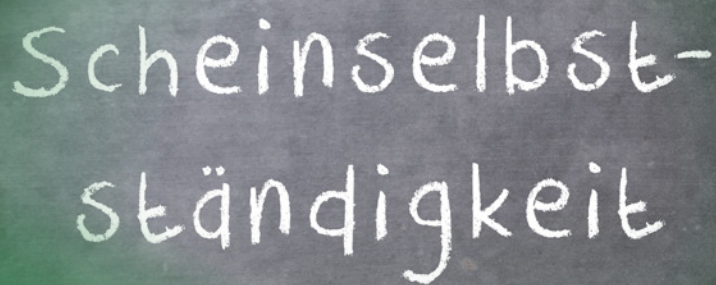 Scheinselbst-
ständigkeit